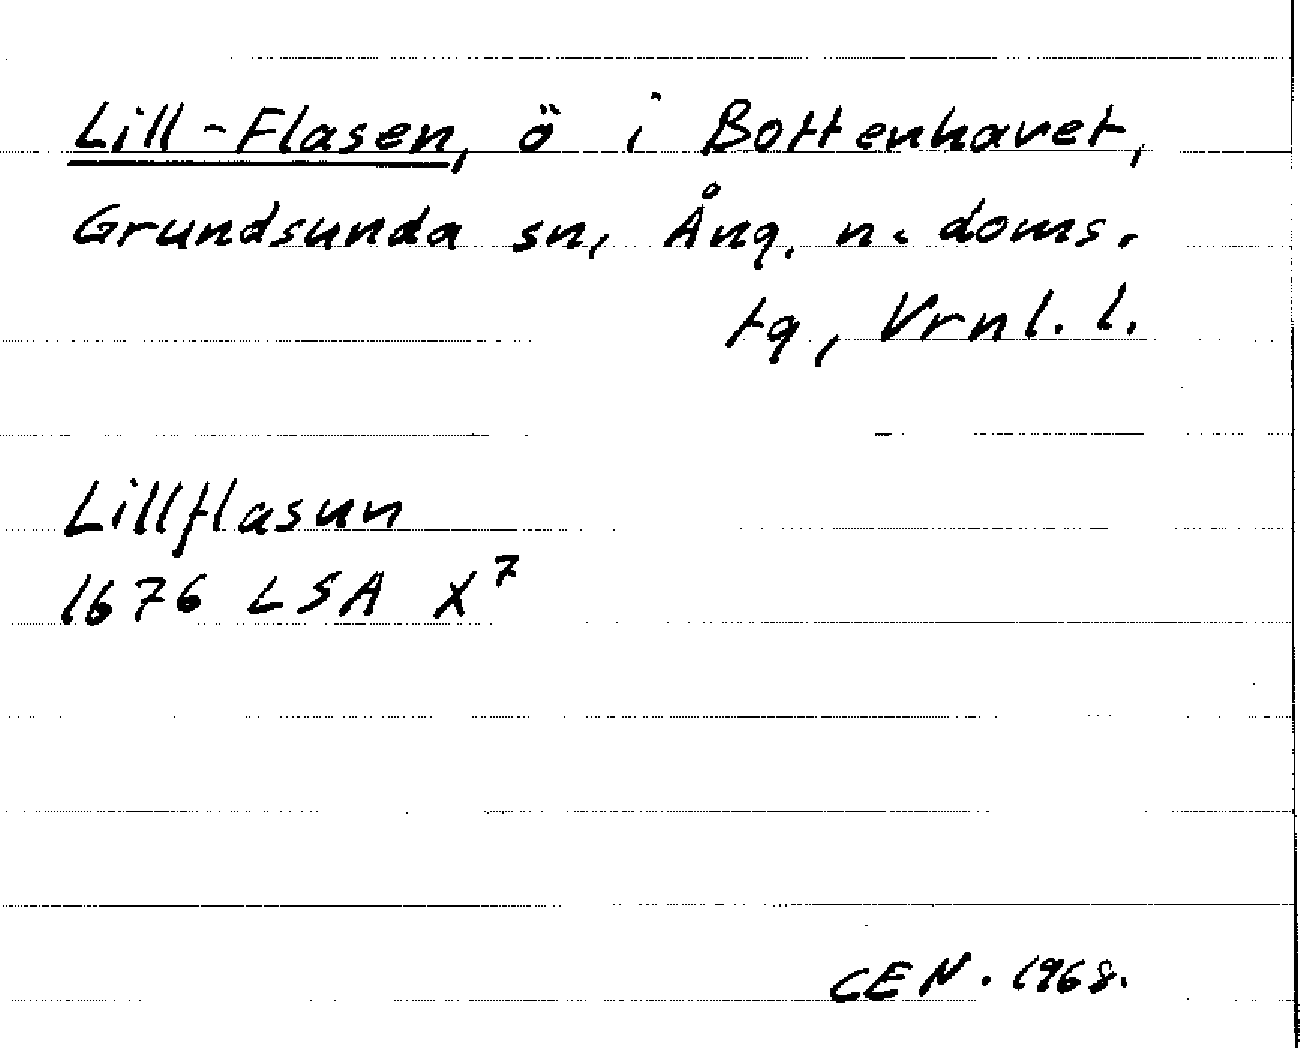 Lill-Flasen, ö i Bottenhavet,
Grundsunda sn, Ång. n. doms.
tg, Vrnl. l.
Lillflasun
1676 LSA X⁷
CEN. 1968.